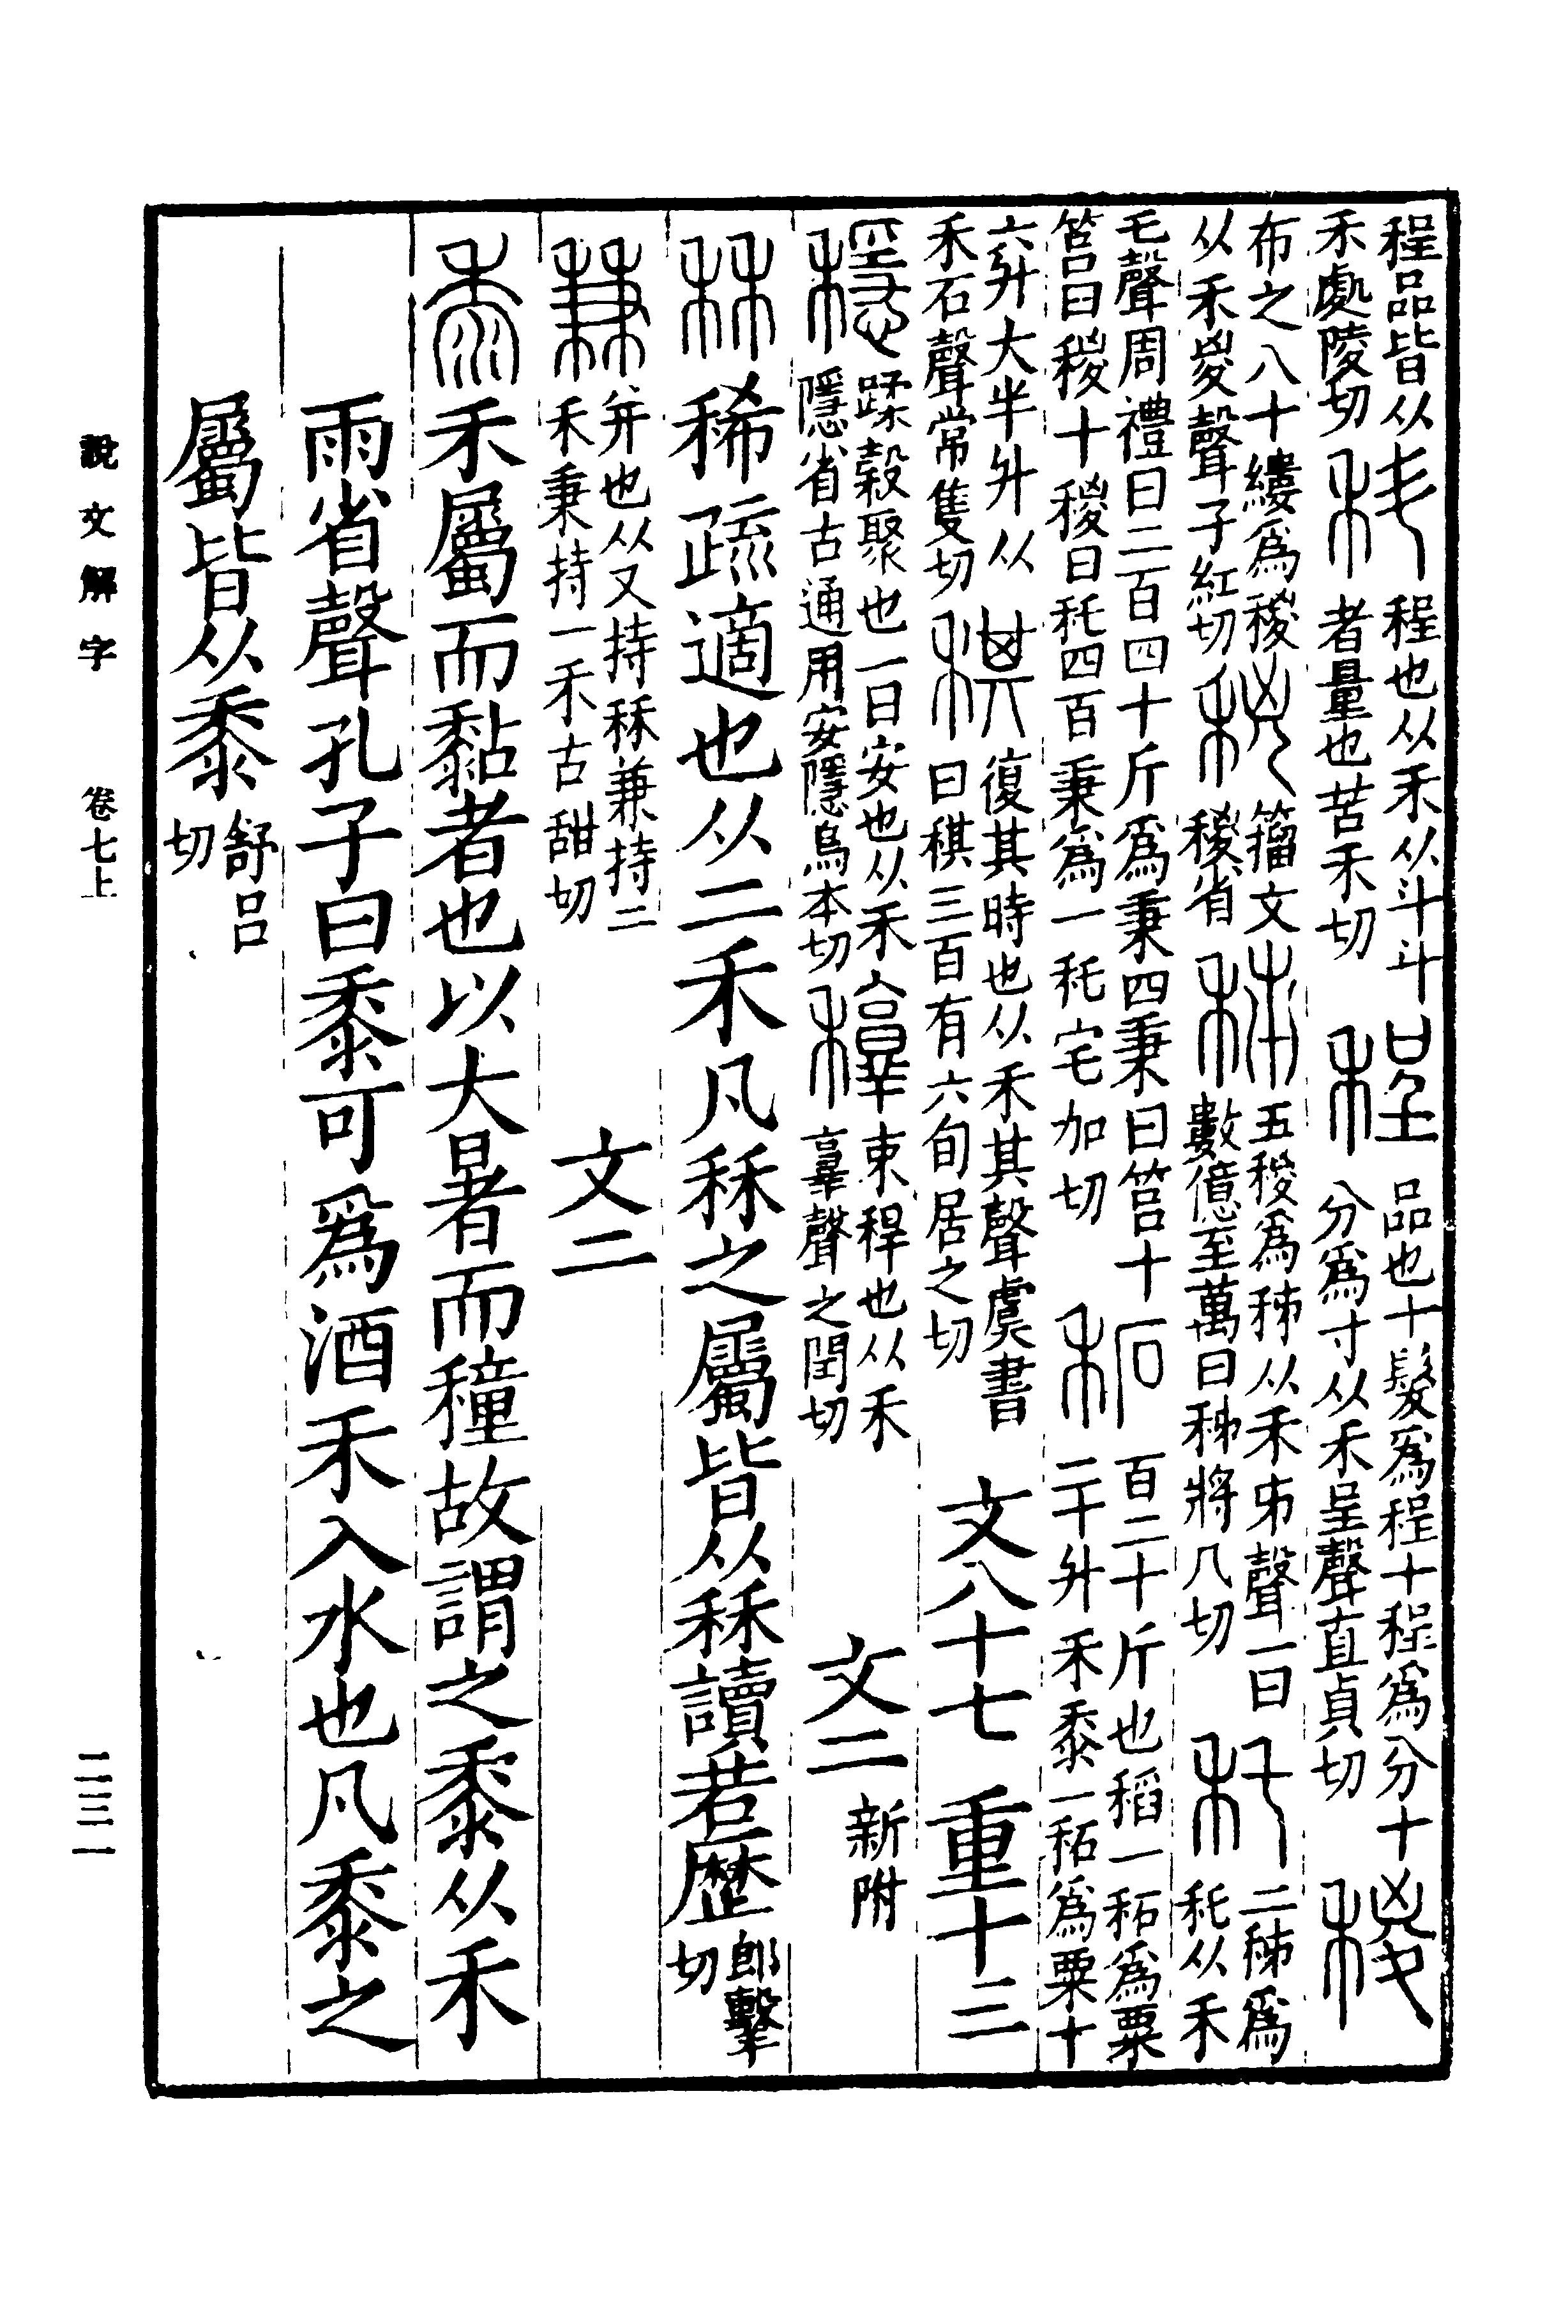 程品皆从禾處陵切科程也从禾从斗斗者量也苦禾切程品也十髮爲程十程爲分十分爲寸从禾呈聲直貞切稯
布之八十縷爲稯从禾㚇聲子紅切𥝩籀文稯省秭五稯爲秭从禾𠂔聲一曰數億至萬曰秭將几切秅二秭爲秅从禾
乇聲周禮曰二百四十斤爲秉四秉曰筥十筥曰稯十稯曰秅四百秉爲一秅宅加切䄷百二十斤也稻一䄷爲粟二十升禾黍一䄷爲粟十
六升大半升从禾石聲常隻切稘復其時也从禾其聲虞書曰稘三百有六旬居之切 文八十七 重十三
穩蹂穀聚也一曰安也从禾隱省古通用安隱烏本切稕束稈也从禾𦎧聲之閏切 文二新附
秝稀疏適也从二禾凡秝之屬皆从秝讀若歷郎擊切
兼并也从又持秝兼持二禾秉持一禾古甜切 文二
黍禾屬而黏者也以大暑而穜故謂之黍从禾
雨省聲孔子曰黍可爲酒禾入水也凡黍之
屬皆从黍舒呂切
說文解字 卷七上 二三一